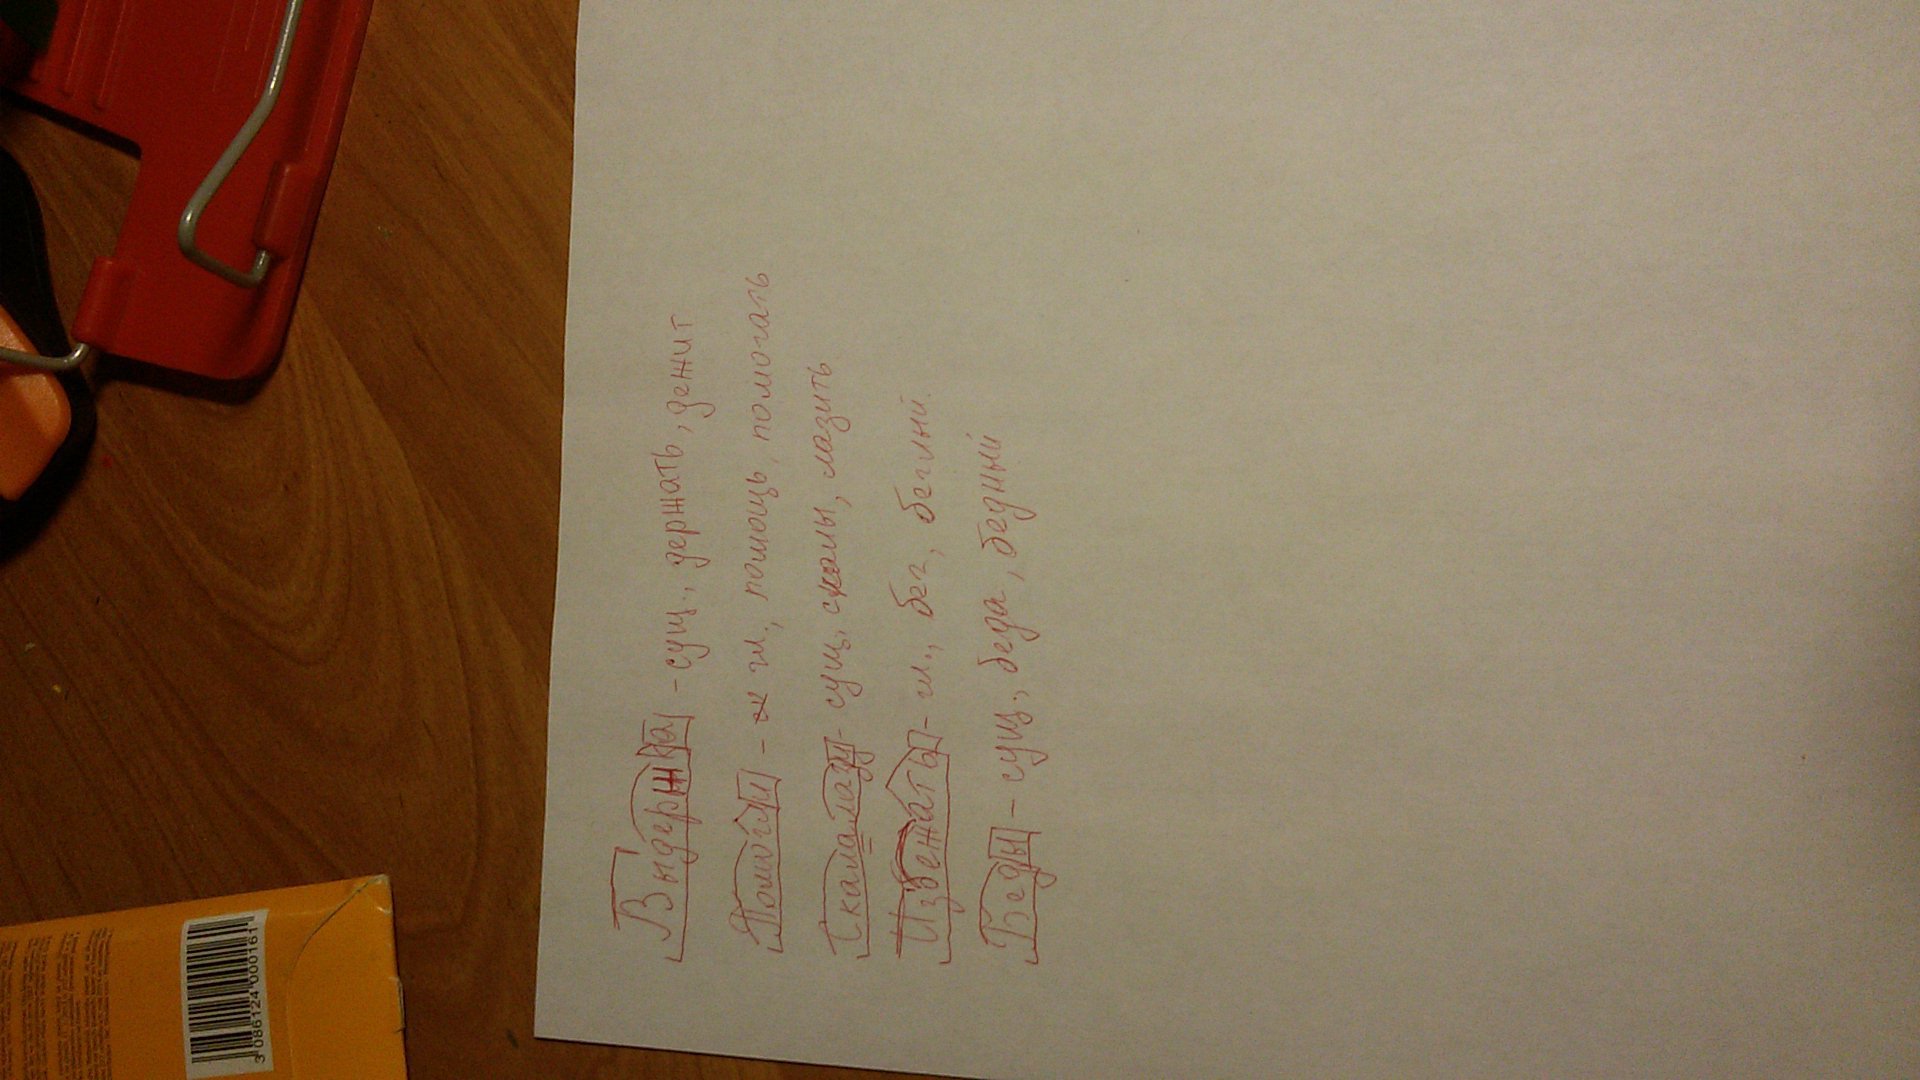 Выдержка - сущ., держать, дежит
Помогли - гл., помощь, помогать
Скалалазу - сущ, скалы, лазить
Избежать - гл., бег, беглый.
Беды - сущ., беда, бедный
3086124000161